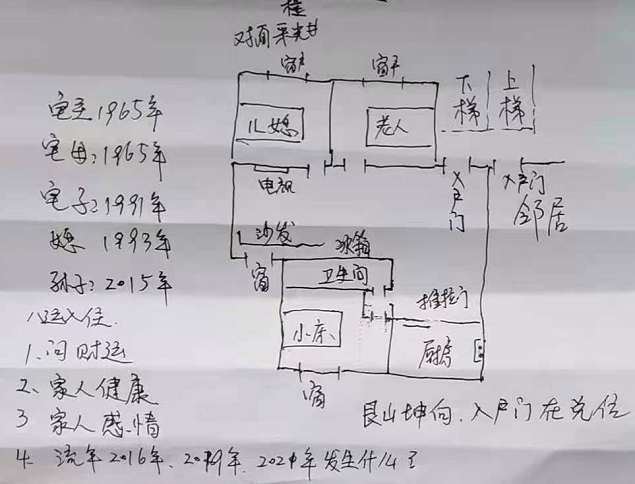 楼
对面采光井
窗户
窗户
下梯
上梯
儿媳
老人
宅主1965年
宅母:1965年
宅子:1991年
媳 1993年
孙子:2015年
八运入住.
电视
入户门
入户门
邻居
沙发
冰箱
窗
卫生间
推拉门
小床
厨房
窗
1.问财运
2、家人健康
3 家人感情
4. 流年2016年、2019年、2021年发生什么
艮山坤向.入户门在兑位